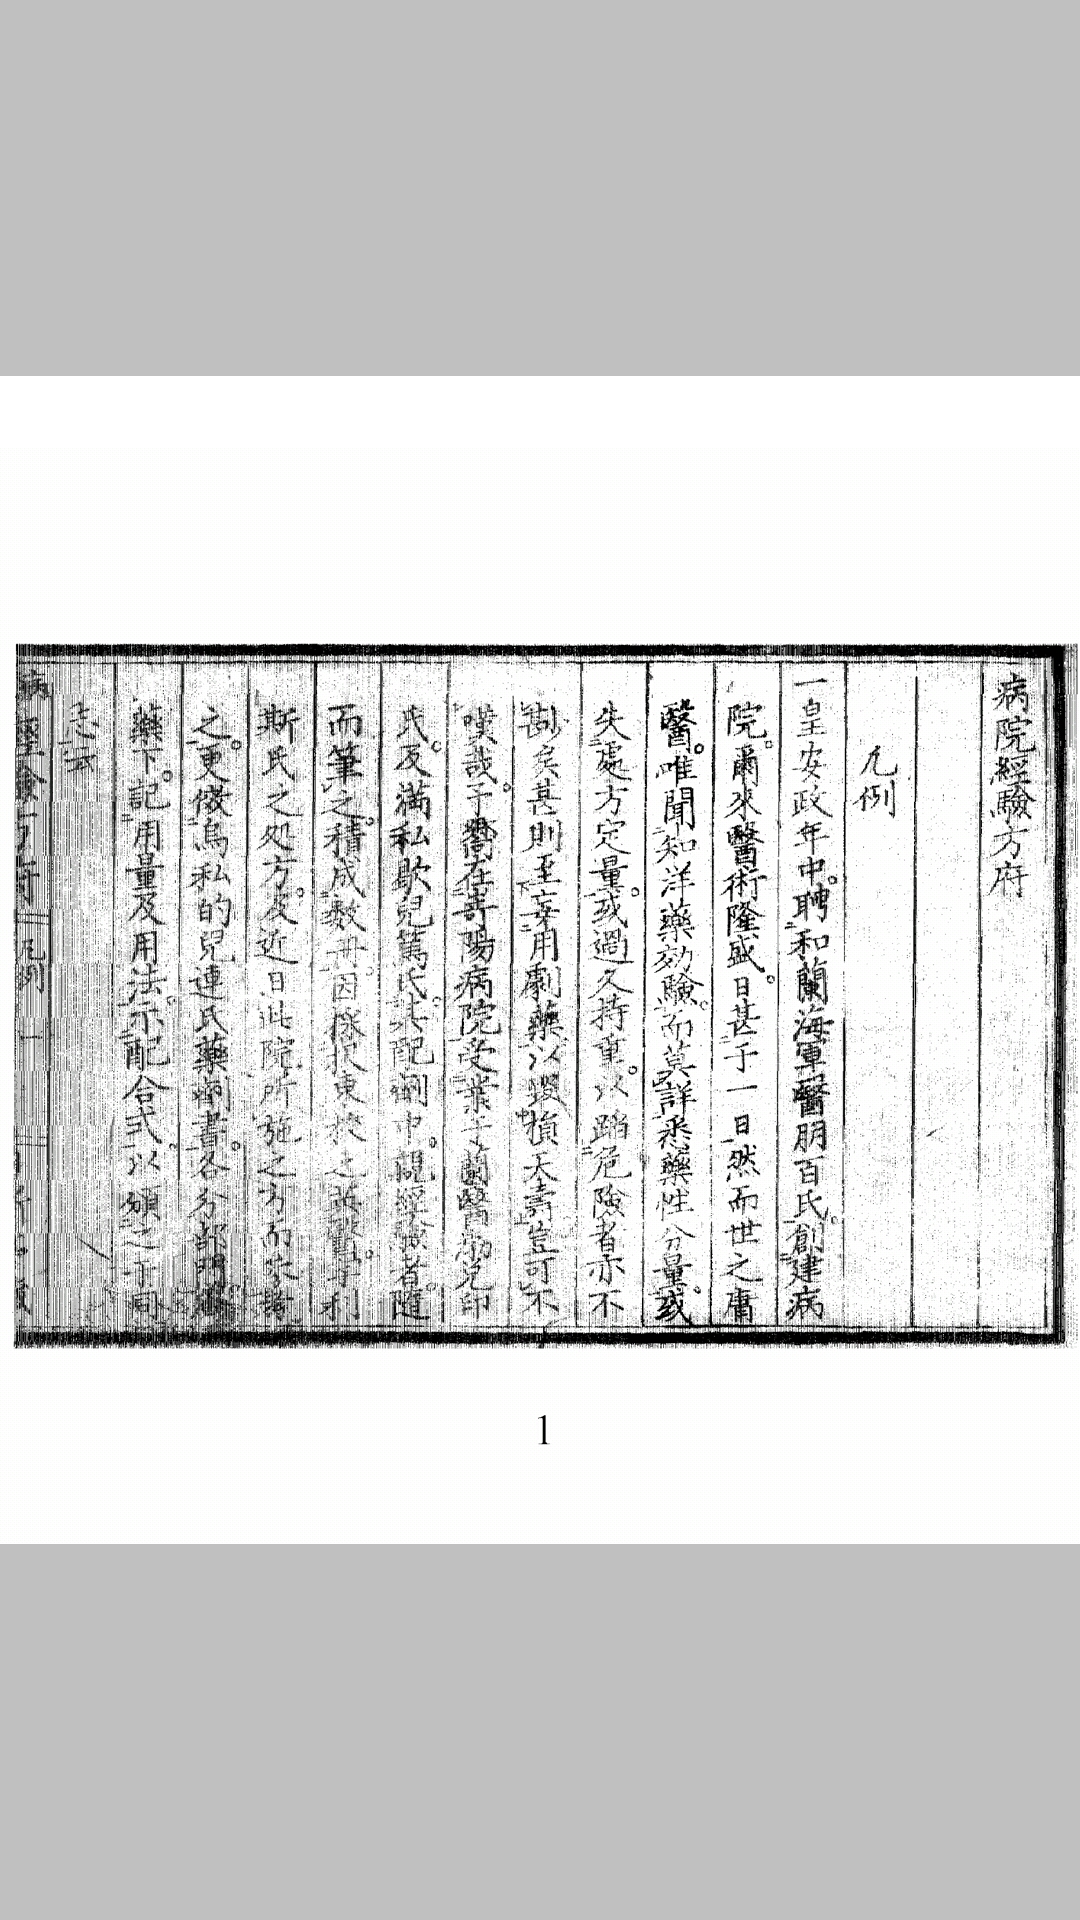 病院經驗方府
凡例
一皇安政年中。聘和蘭海軍醫朋百氏。創建病
院。爾來醫術隆盛。日甚于一日然而世之庸
醫。唯聞知洋藥効驗。而莫詳悉藥性分量。或
失處方定量。或過久持重。以蹈危險者亦不
尠矣甚則至妄用劇藥以毀損夭壽豈可不
嘆哉。予嚮在崎陽病院受業于蘭醫勃兌印
氏。及滿私歇兒篤氏。其配劑中。親經驗者。隨
而筆之。積成數冊。因
斯氏之処方。及近日此院所施之方而
之。更倣烏私的兒連氏藥劑書。各分部門。
藥下。記用量及用法。示配合式。以頒之于同
志云